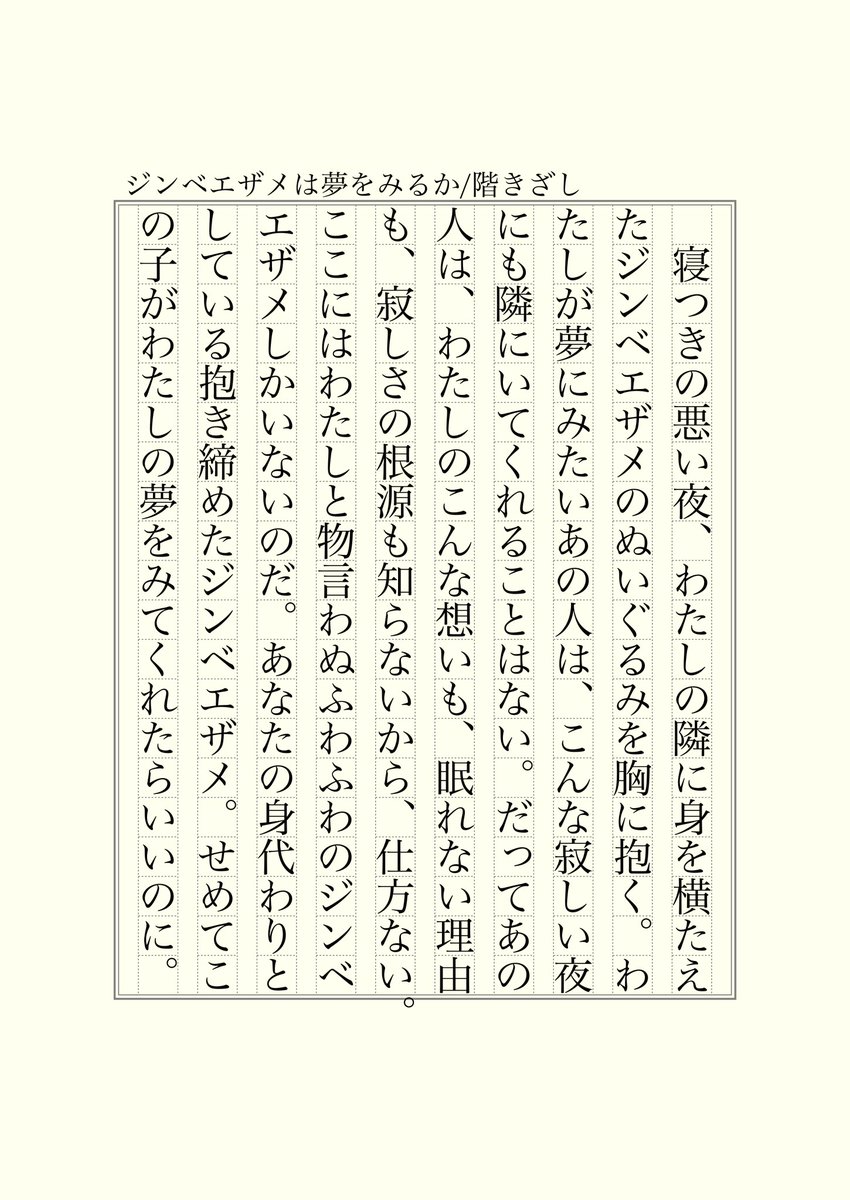 ジンベエザメは夢をみるか/階きざし
　寝つきの悪い夜、わたしの隣に身を横たえ
たジンベエザメのぬいぐるみを胸に抱く。わ
たしが夢にみたいあの人は、こんな寂しい夜
にも隣にいてくれることはない。だってあの
人は、わたしのこんな想いも、眠れない理由
も、寂しさの根源も知らないから、仕方ない。
ここにはわたしと物言わぬふわふわのジンベ
エザメしかいないのだ。あなたの身代わりと
している抱き締めたジンベエザメ。せめてこ
の子がわたしの夢をみてくれたらいいのに。